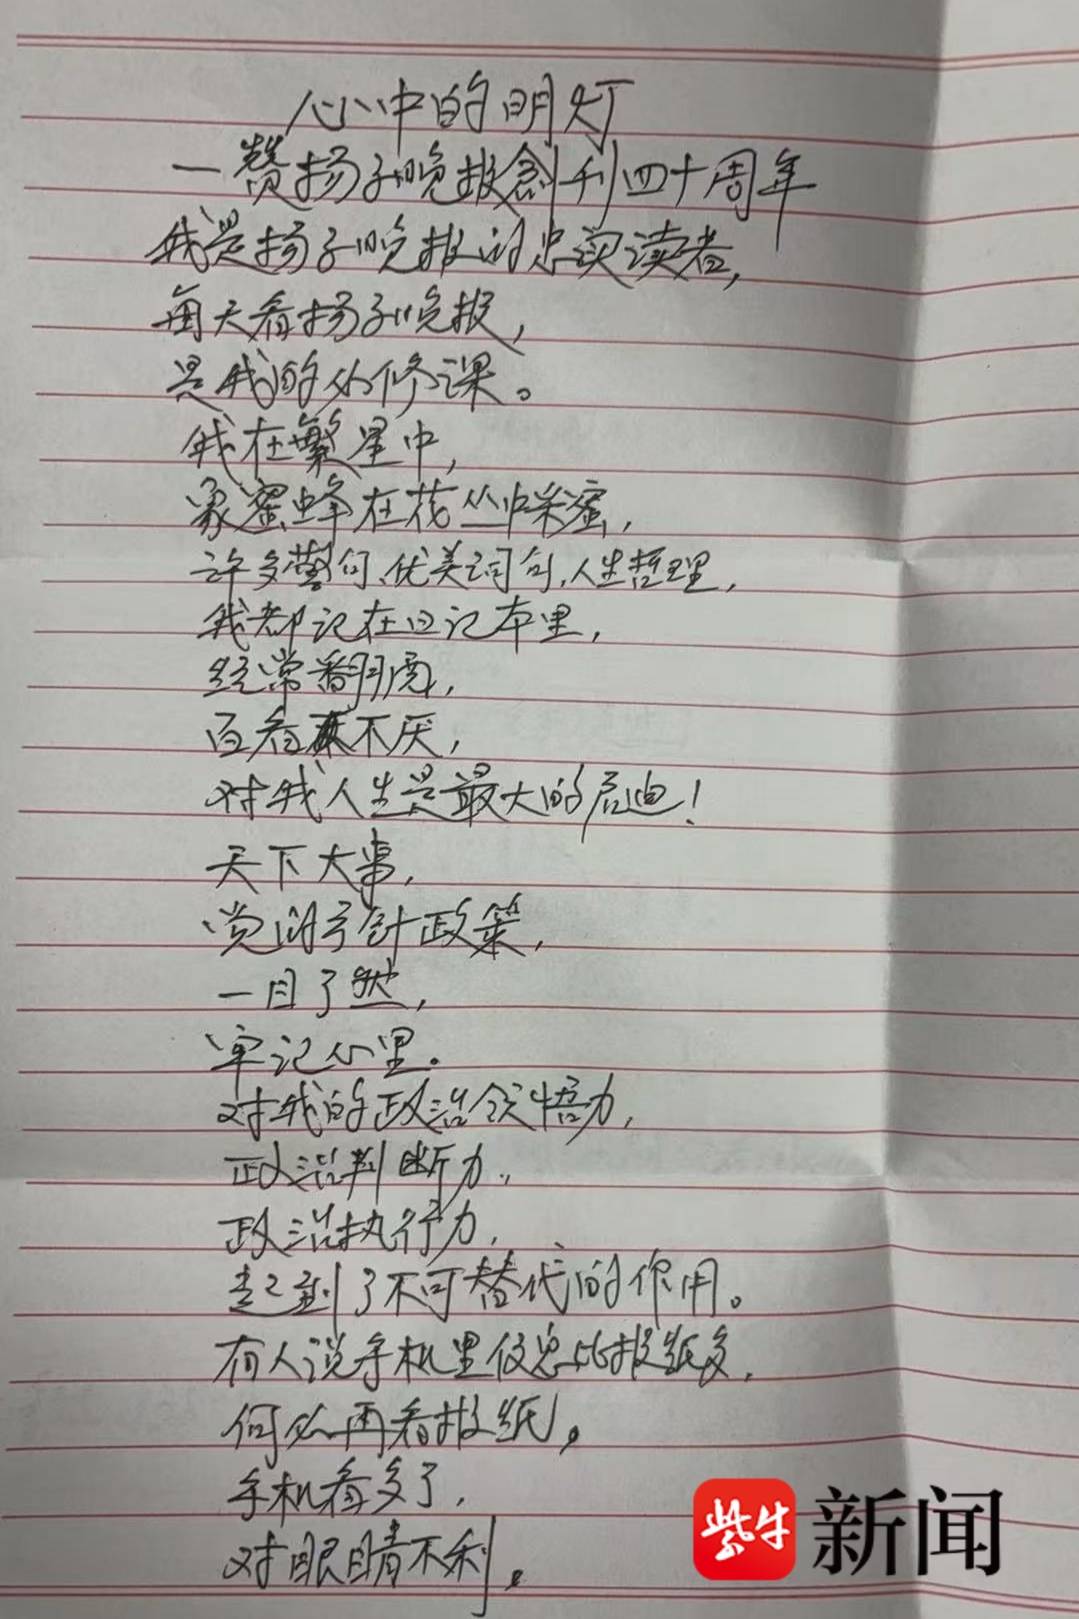 心中的明灯
一赞扬子晚报创刊四十周年
我是扬子晚报的忠实读者，
每天看扬子晚报，
是我的必修课。
我在繁星中，
象蜜蜂在花丛中采蜜，
许多警句、优美词句，人生哲理，
我都记在日记本里，
经常翻阅，
百看不厌，
对我人生是最大的启迪！
天下大事，
党的方针政策，
一目了然，
牢记心里。
对我的政治领悟力，
政治判断力，
政治执行力，
起到了不可替代的作用。
有人说手机里信息比报纸多，
何必再看报纸，
手机看多了，
对眼睛不利。
紫牛 新闻